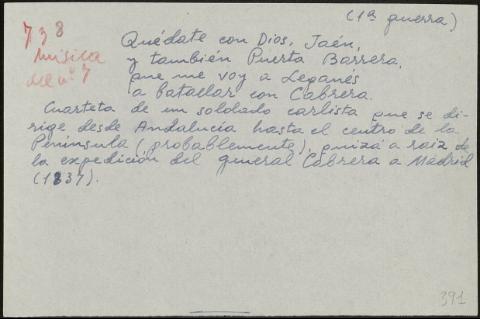 (1ª guerra)
738
música
del nº 7
Quédate con Dios, Jaén,
y también Puerta Barrera,
que me voy a Leganés
a batallar con Cabrera.
Cuarteta de un soldado carlista que se di-
rige desde Andalucía hasta el centro de la
Península (probablemente), quizá a raíz de
la expedición del general Cabrera a Madrid
(1837).
391